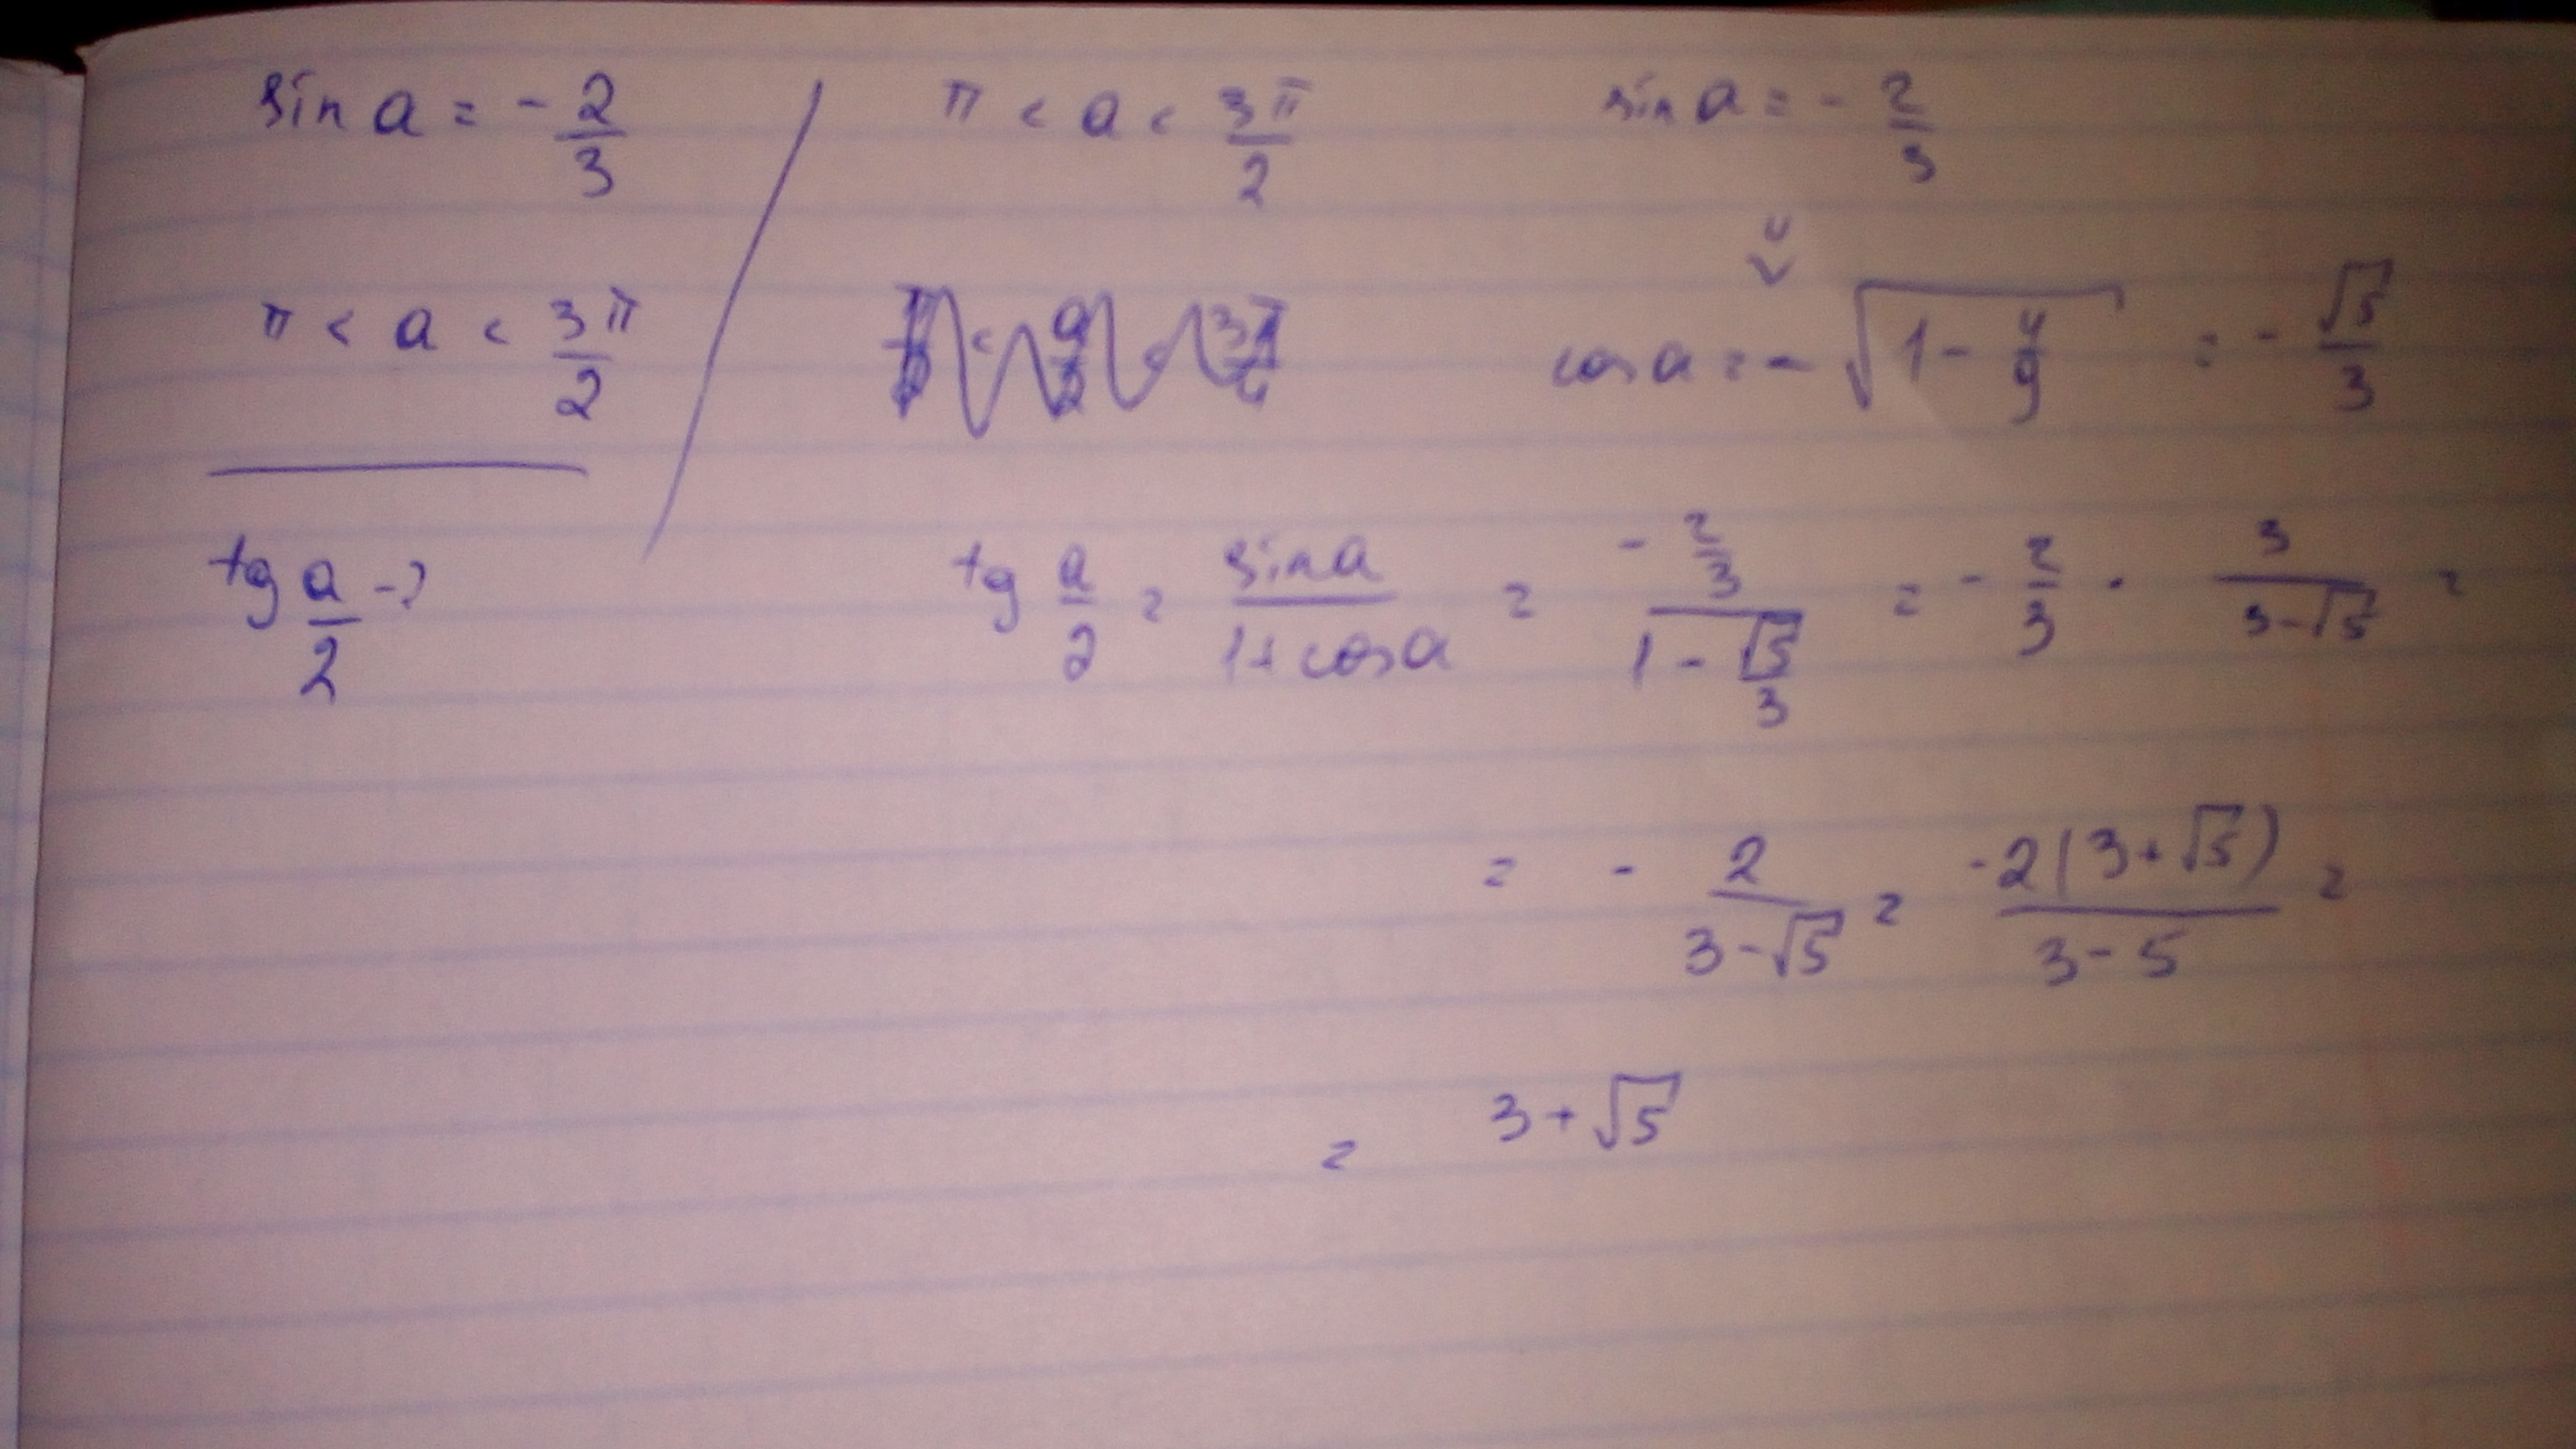 sin a = - 2/3
π < a < 3π/2
tg a/2 - ?
π < a < 3π/2
sin a = - 2/3
⇓
cos a = - √(1 - 4/9) = - √5/3
tg a/2 = sin a/(1 + cos a) = (- 2/3)/(1 - √5/3) = - 2/3 · 3/(3-√5) =
= - 2/(3-√5) = -2(3+√5)/(3-5) =
= 3+√5